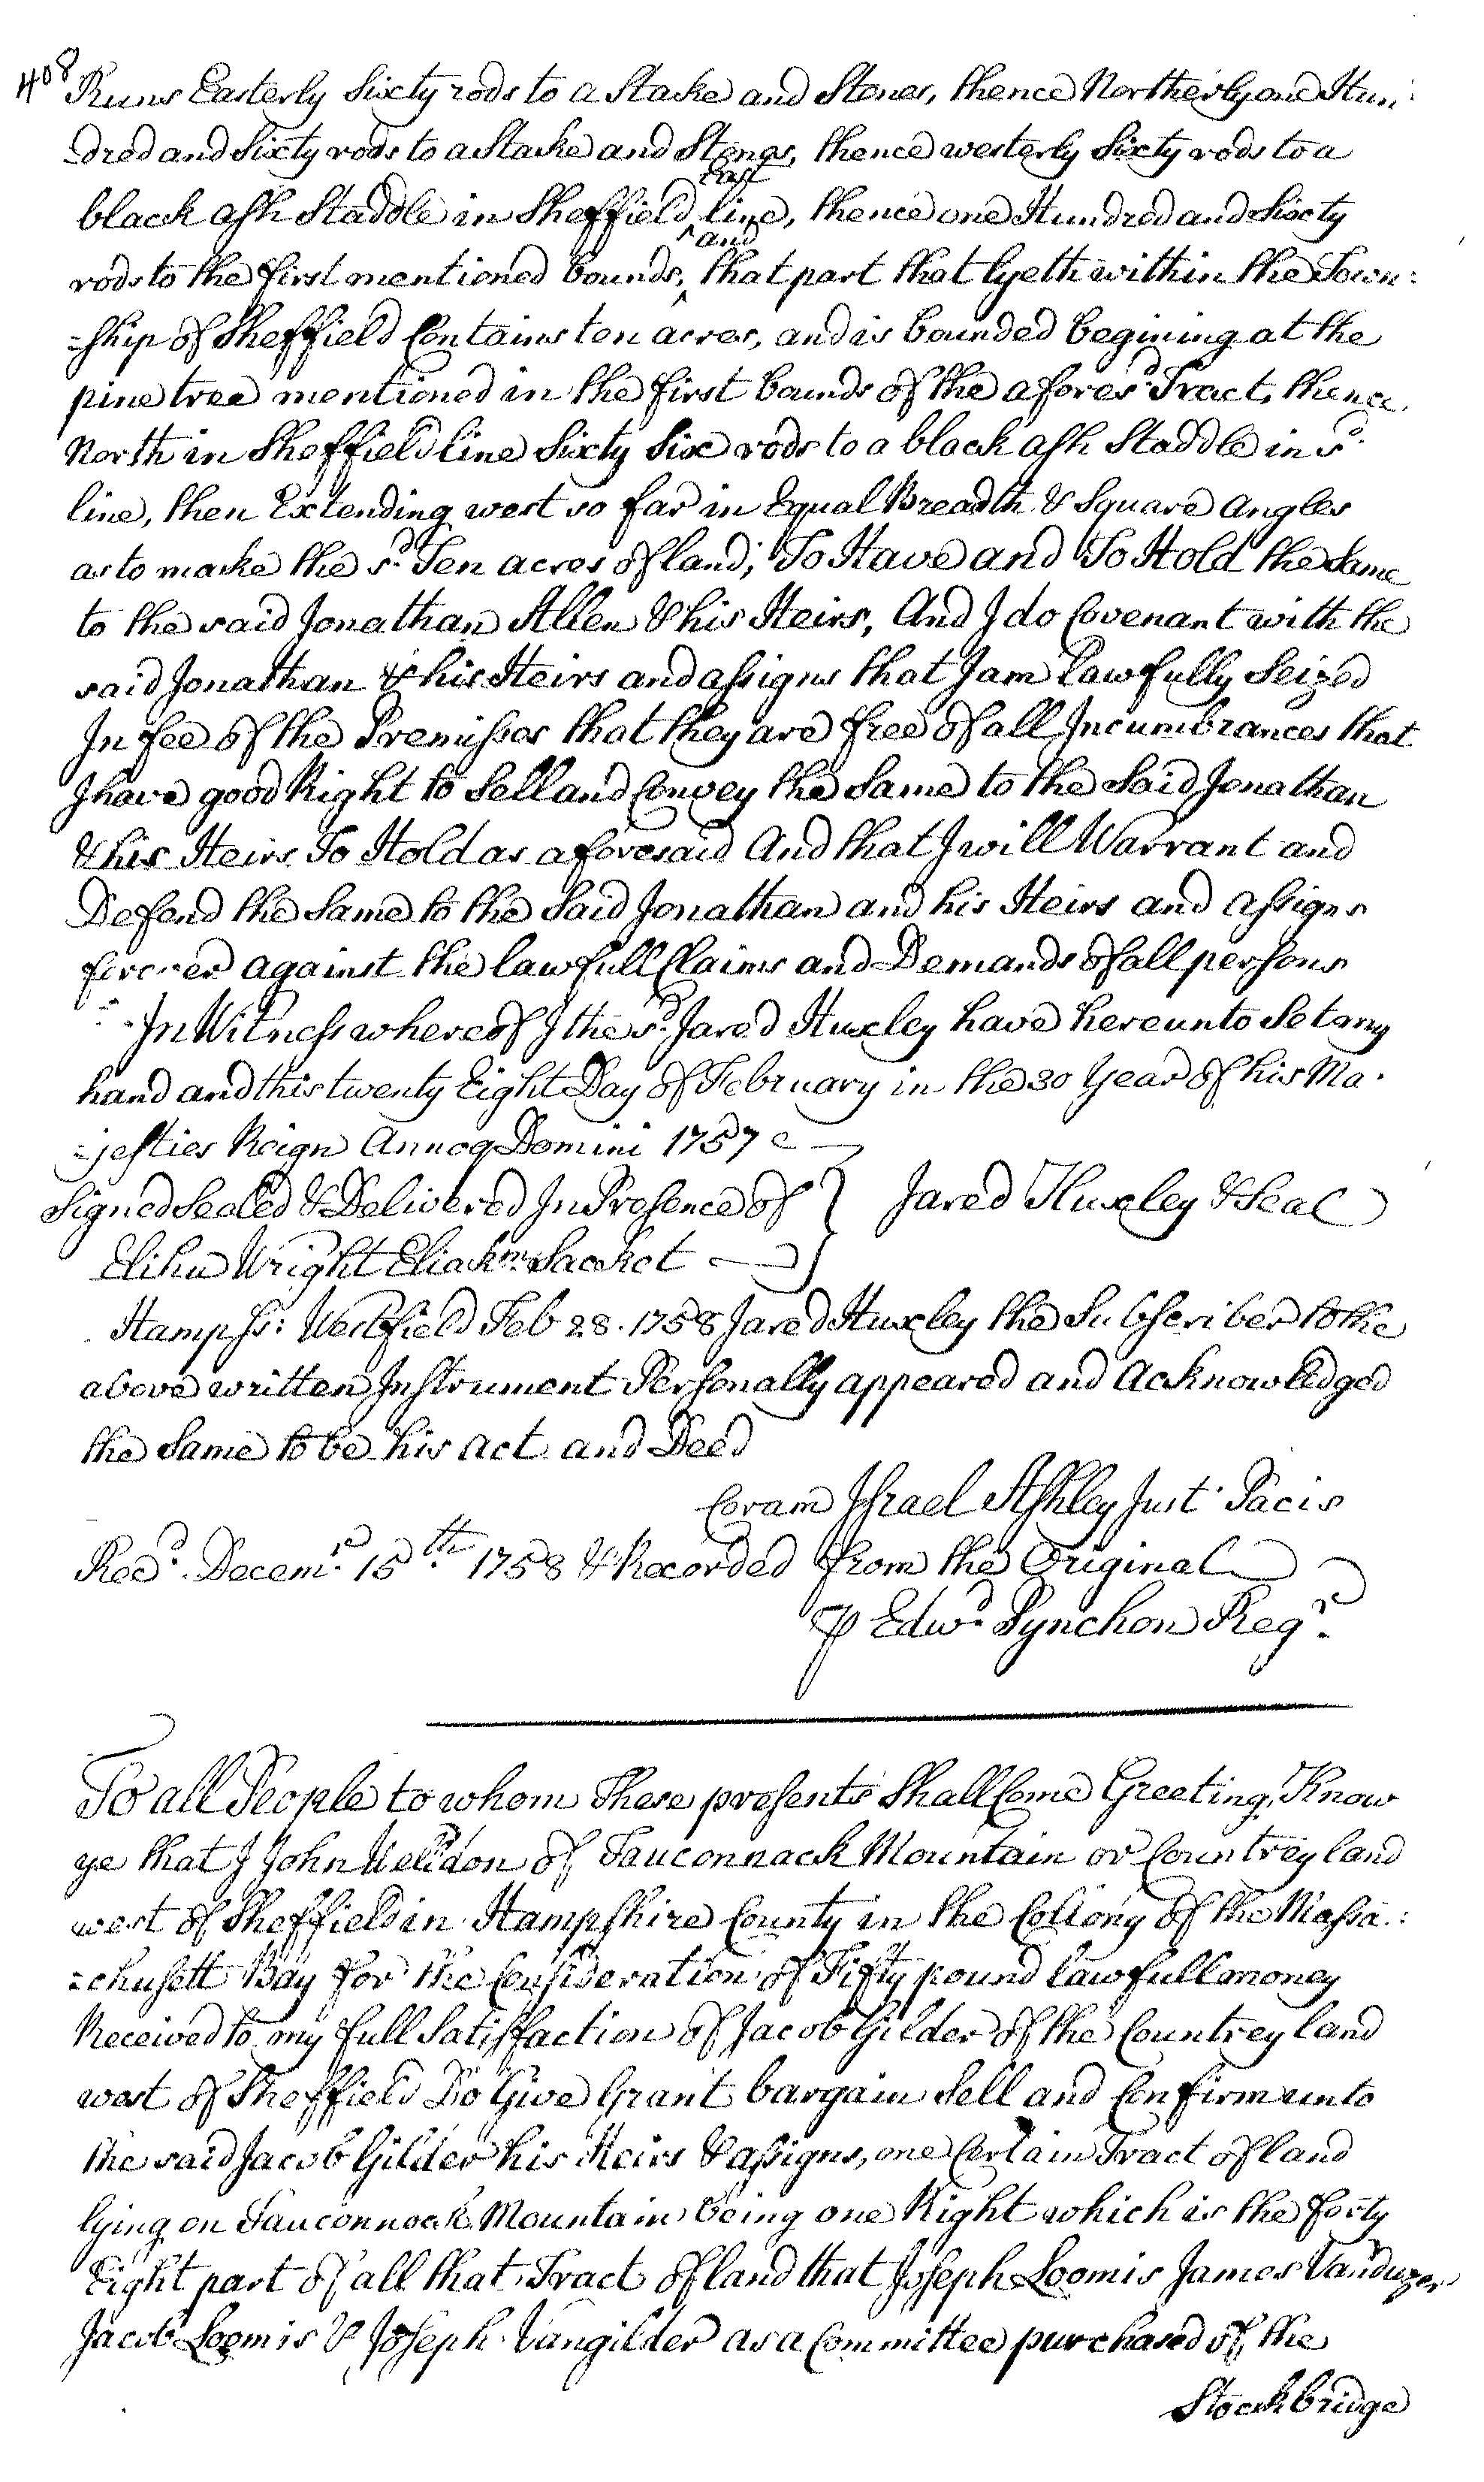 408 Runs Easterly Sixty rods to a Stake and Stones, thence Northerly one Hun:
=dred and Sixty rods to a Stake and Stones, thence westerly Sixty rods to a
black ash Staddle in Sheffield ^East line, thence one Hundred and Sixty
rods to the first mentioned bounds, ^and that part that lyeth within the Town:
=ship of Sheffield Contains ten acres, and is bounded begining at the
pine tree mentioned in the first bounds of the afores.d Tract, thence
North in Sheffield line Sixty Six rods to a black ash Staddle in s.d
line, then Extending west so far in Equal Breadth & Square Angles
as to make the s.d Ten acres of land; To Have and To Hold the Same
to the said Jonathan Allen & his Heirs, And I do Covenant with the
said Jonathan & his Heirs and assigns that I am Lawfully Seized
In fee of the Premisses that they are free of all Incumbrances that
I have good Right to Sell and Convey the Same to the Said Jonathan
& his Heirs To Hold as aforesaid And that I will Warrant and
Defend the Same to the Said Jonathan and his Heirs and assigns
forever against the lawfull Claims and Demands of all persons
In Witness whereof I the s.d Jared Huxley have hereunto Set my
hand and this twenty Eight Day of February in the 30 Year of his Ma.
=jesties Reign Annoq Domini 1757
Signed Sealed & Delivered In Presence of } Jared Huxley & Seal
Elihu Wright Eliak.m Sacket
Hamps: Westfield Feb 28. 1758 Jared Huxley the Subscriber to the
above written Instrument Personally appeared and Acknowledged
the Same to be his act and Deed
Coram Israel Ashley Just. Pacis
Rec.d Decem.r 15.th 1758 & Recorded from the Original
⅌ Edw.d Pynchon Reg.r
To all People to whom These presents Shall Come Greeting, Know
ye that I John Welldon of Tauconnack Mountain or Countrey land
west of Sheffield in Hampshire County in the Collony of the Massa:
=chusett Bay for the Consideration of Fifty pound lawfull money
Received to my full Satisfaction of Jacob Gilder of the Countrey land
west of Sheffield Do Give Grant bargain Sell and Confirm unto
the said Jacob Gilder his Heirs & assigns, one Certain Tract of land
lying on Tauconnack Mountain being one Right which is the forty
Eight part of all that Tract of land that Joseph Loomis James Vanduzer
Jacob Loomis & Joseph Vangilder as a Committee purchased of the
Stockbridge